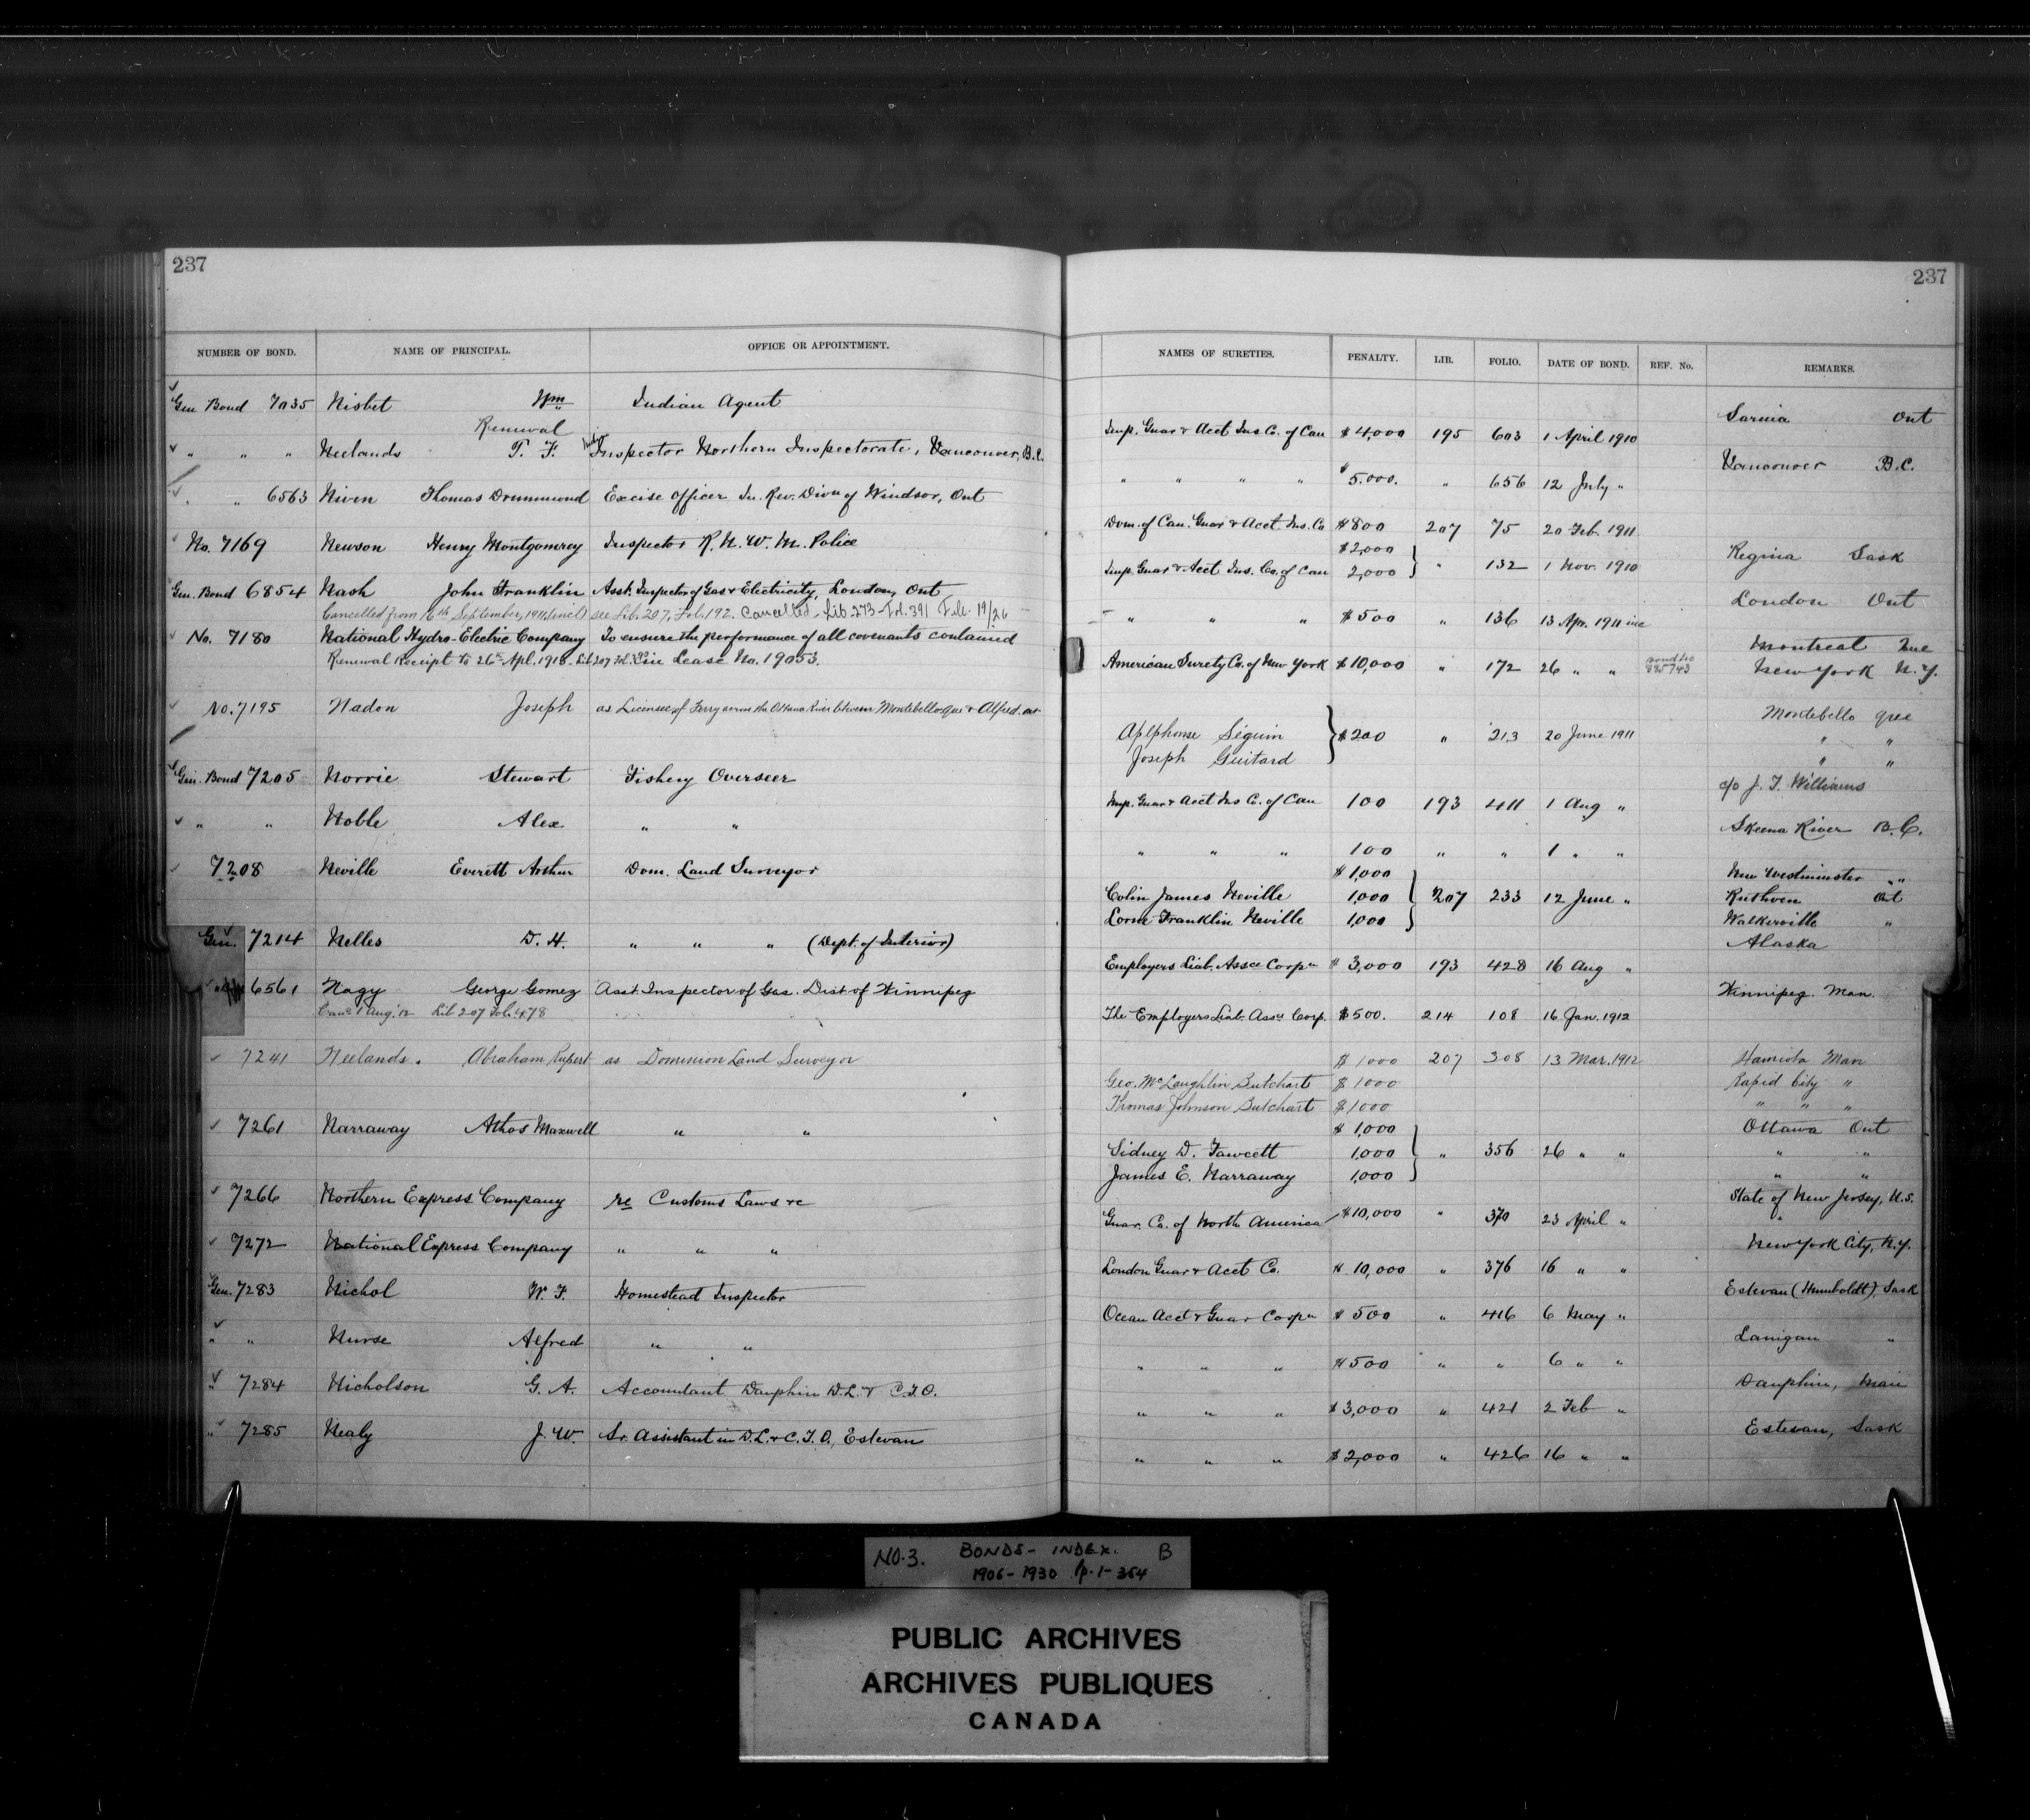 237
NUMBER OF BOND. NAME OF PRINCIPAL. OFFICE OR APPOINTMENT.
Gen Bond 7035 Nisbet Wm Indian Agent
Renewal
" " " Neelands T. F. Inspector Northern Inspectorate, Vancouver, B.C.
" " 6563 Niven Thomas Drummond Excise Officer In. Rev. Divn of Windsor, Ont
No. 7169 Newson Henry Montgomrey Inspector R. N. W. M. Police
Gen. Bond 6854 Nash John Franklin Asst. Inspector of Gas & Electricity, London, Ont
Cancelled from 16th September, 1911, (incl) see Lib. 207, Fol. 192. Cancelled - Lib 273 - Fol. 391 File 19/26
No. 7180 National Hydro-Electric Company To ensure the performance of all covenants contained
Renewal Receipt to 26th Apl. 1913. Lib 207 Fol. in Lease No. 19053.
No. 7195 Nadon Joseph as Licensee of Ferry across the Ottawa River between Montebello Que & Alfred. Ont
Gen. Bond 7205 Norrie Stewart Fishery Overseer
" " Noble Alex " "
7208 Neville Everett Arthur Dom. Land Surveyor
Gen. 7214 Nelles D. H. " " " (Dept. of Interior)
6561 Nagy George Gomez Asst Inspector of Gas. Dist of Winnipeg
Canc 1 Aug. 12 Lib 207 Fol. 478
7241 Neelands. Abraham Rupert as Dominion Land Surveyor
7261 Narraway Athos Maxwell " "
7266 Northern Express Company re Customs Laws &c
7272 National Express Company " " "
Gen. 7283 Nichol W. F. Homestead Inspector
" " Nurse Alfred " "
" 7284 Nicholson G. A. Accountant Dauphin D.L. & C.T.O.
" 7285 Nealy J. W. Sr. Assistant in D.L. & C.T.O., Estevan
237
NAMES OF SURETIES. PENALTY. LIB. FOLIO. DATE OF BOND. REF. No. REMARKS.
Sarnia Ont
Imp. Guar & Acct Ins Co. of Can $4,000 195 603 1 April 1910
Vancouver B.C.
" " " " $5.000. " 656 12 July "
Dom. of Can. Guar & Acct Ins. Co $800 207 75 20 Feb. 1911
$2,000 Regina Sask
Imp. Guar & Acct Ins. Co. of Can 2,000 " 132 1 Nov. 1910
London Ont
" " " $500 " 136 13 Apr. 1911 inc
Montreal Que
American Surety Co. of New York $10,000 " 172 26 " " Bond No 885743 New York N.Y.
Montebello Que
Aplphonse Séguin $200 " 213 20 June 1911 " "
Joseph Guitard " "
c/o J. T. Williams
Imp. Guar & Acct Ins Co. of Can 100 193 411 1 Aug "
Skeena River B.C.
" " " 100 " " 1 " "
$1,000 New Westminster "
Colin James Neville 1,000 207 233 12 June " Ruthven Ont
Lorne Franklin Neville 1,000 Walkerville "
Alaska
Employers Liab. Assce Corpn $3,000 193 428 16 Aug "
Winnipeg. Man.
The Employers Liab. Assce Corp. $500. 214 108 16 Jan. 1912
$1000 207 308 13 Mar. 1912 Hamiota Man
Geo. McLaughlin Butchart $1000 Rapid City "
Thomas Johnson Butchart $1000 " " "
$1,000 Ottawa Ont
Sidney D. Fawcett 1,000 " 356 26 " " " "
James E. Narraway 1,000 " "
State of New Jersey, U.S.
Guar. Co. of North America $10,000 " 370 23 April "
New York City, N.Y.
London Guar & Acct Co. $10,000 " 376 16 " "
Estevan (Humboldt), Sask
Ocean Acct & Guar Corpn $500 " 416 6 May "
Lanigan "
" " " $500 " " 6 " "
Dauphin, Man
" " " $3,000 " 421 2 Feb "
Estevan, Sask
" " " $2,000 " 426 16 " "
NO. 3. BONDS - INDEX. B
1906-1930 p. 1-354
PUBLIC ARCHIVES
ARCHIVES PUBLIQUES
CANADA